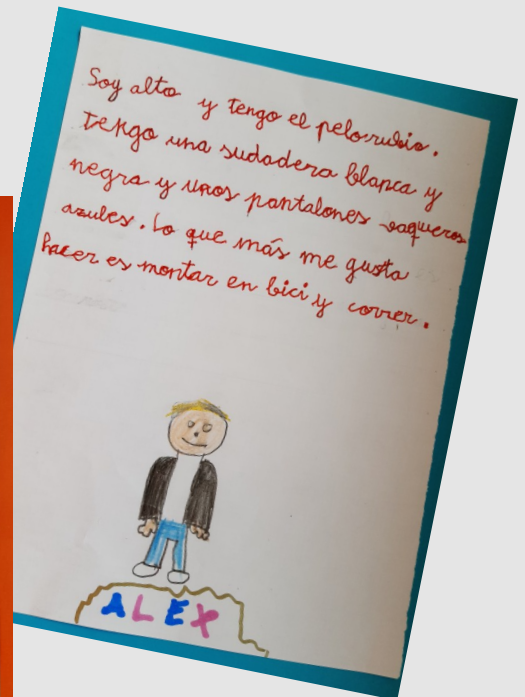 Soy alto y tengo el pelo rubio.
tengo una sudadera blanca y
negra y unos pantalones vaqueros
azules. Lo que más me gusta
hacer es montar en bici y correr.
ALEX